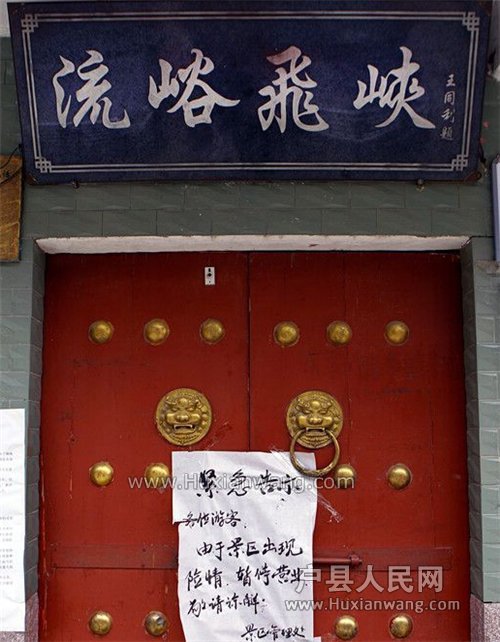 流峪飛峽
王同利題
www.Huxianwang.com
紧急告示
各位游客
由于景区出现
险情,暂停营业
敬请谅解!
景区管理处
户县人民网
www.Huxianwang.com